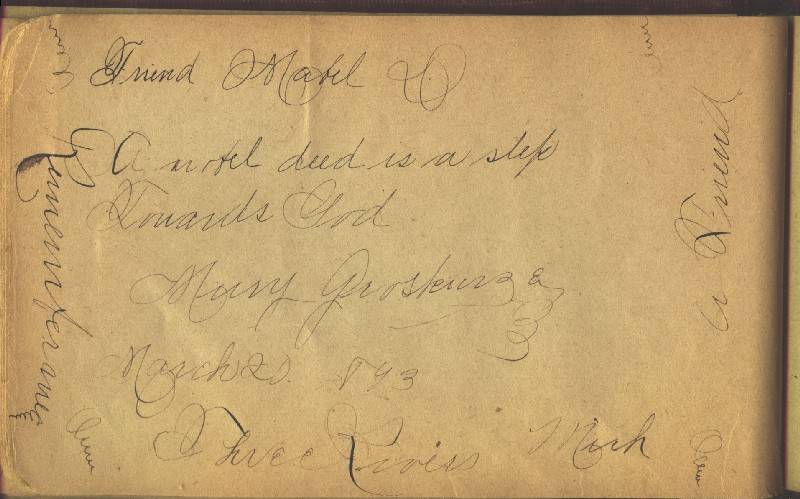 Friend Mabel D.
A nobel deed is a step
Towards God
Mary
March 20. 893
Three Rivers Mich
Rememberance
a Friend